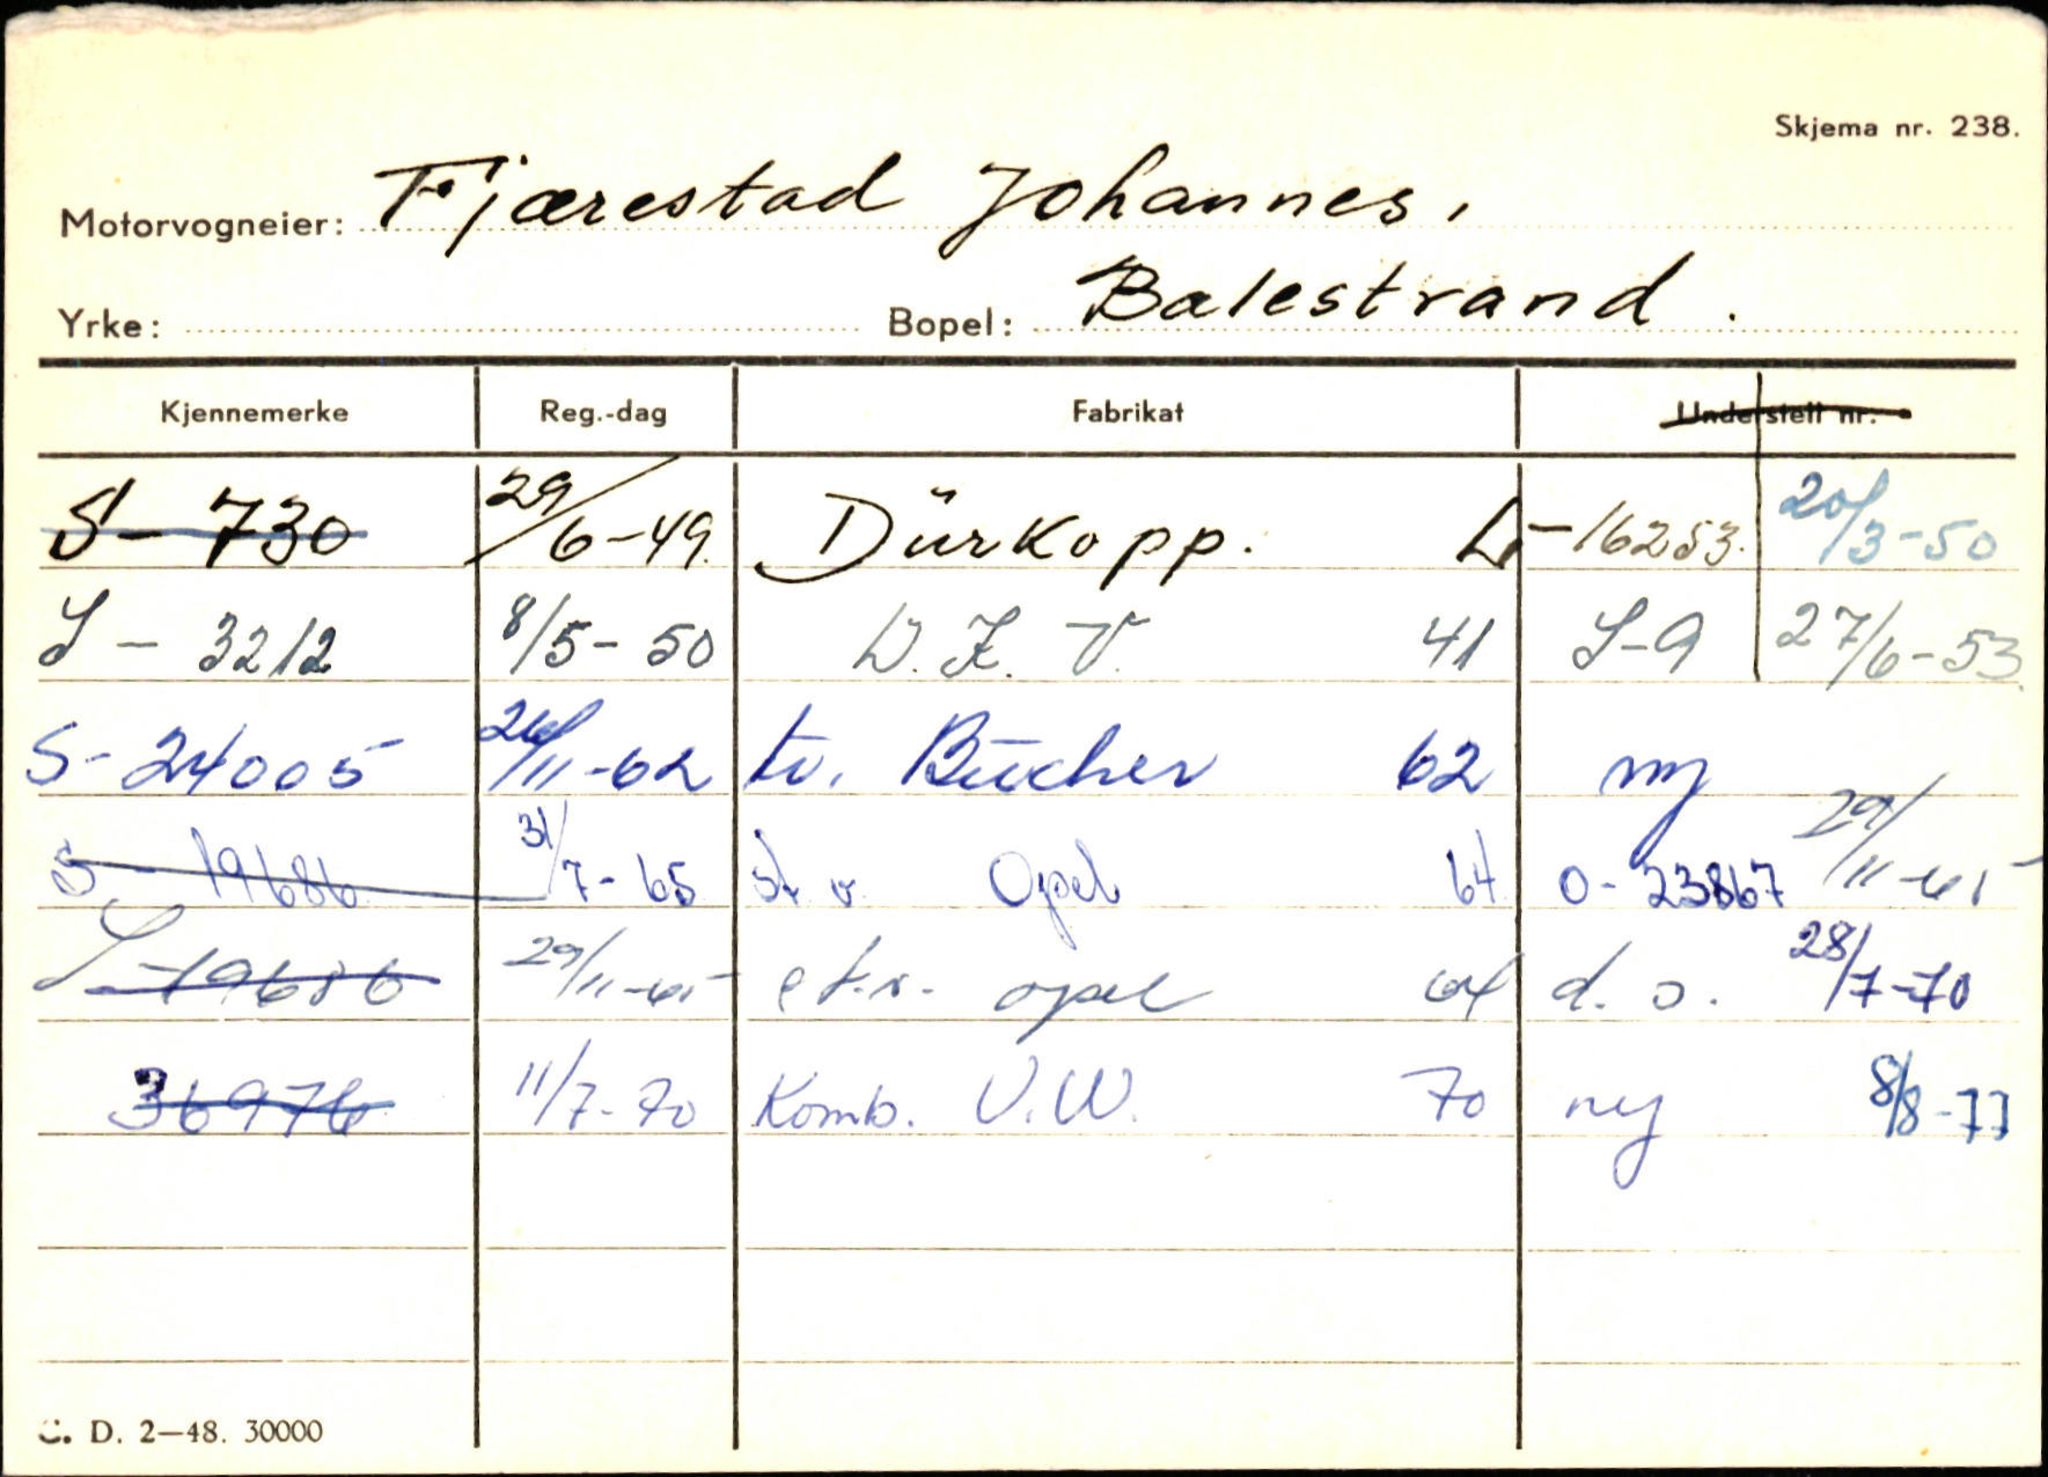 Skjema nr. 238.
Motorvogneier: Fjærestad Johannes,
Yrke: Bopel: Balestrand.
Kjennemerke Reg.-dag Fabrikat Understell nr.
S - 730 29/6-49. Dürkopp. L-16253. 20/3-50
S - 3212 8/5-50 D. K. V. 41 S-9 27/6-53.
S-24005 26/11-62 tv. Bücher 62 ny
S - 19686 31/7-65 st. v. Opel 64 O-23867 29/11-65
S-19686 29/11-65 st.v. opel 64 d. o. 28/7-70
36976 11/7-70 Komb. V.W. 70 ny 8/8-77
D. 2—48. 30000